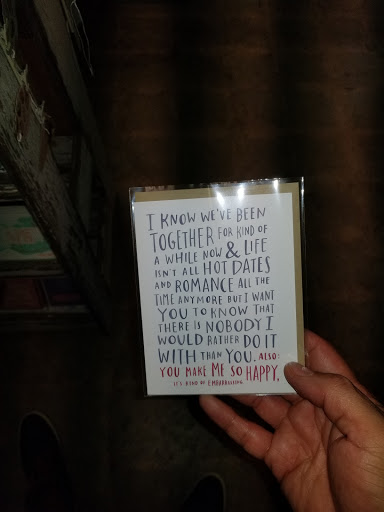 I KNOW WE'VE BEEN
TOGETHER FOR KIND OF
A WHILE NOW & LIFE
ISN'T ALL HOT DATES
AND ROMANCE ALL THE
TIME ANYMORE BUT I WANT
YOU TO KNOW THAT
THERE IS NOBODY I
WOULD RATHER DO IT
WITH THAN YOU. ALSO:
YOU MAKE ME SO HAPPY,
IT'S KIND OF EMBARRASSING.